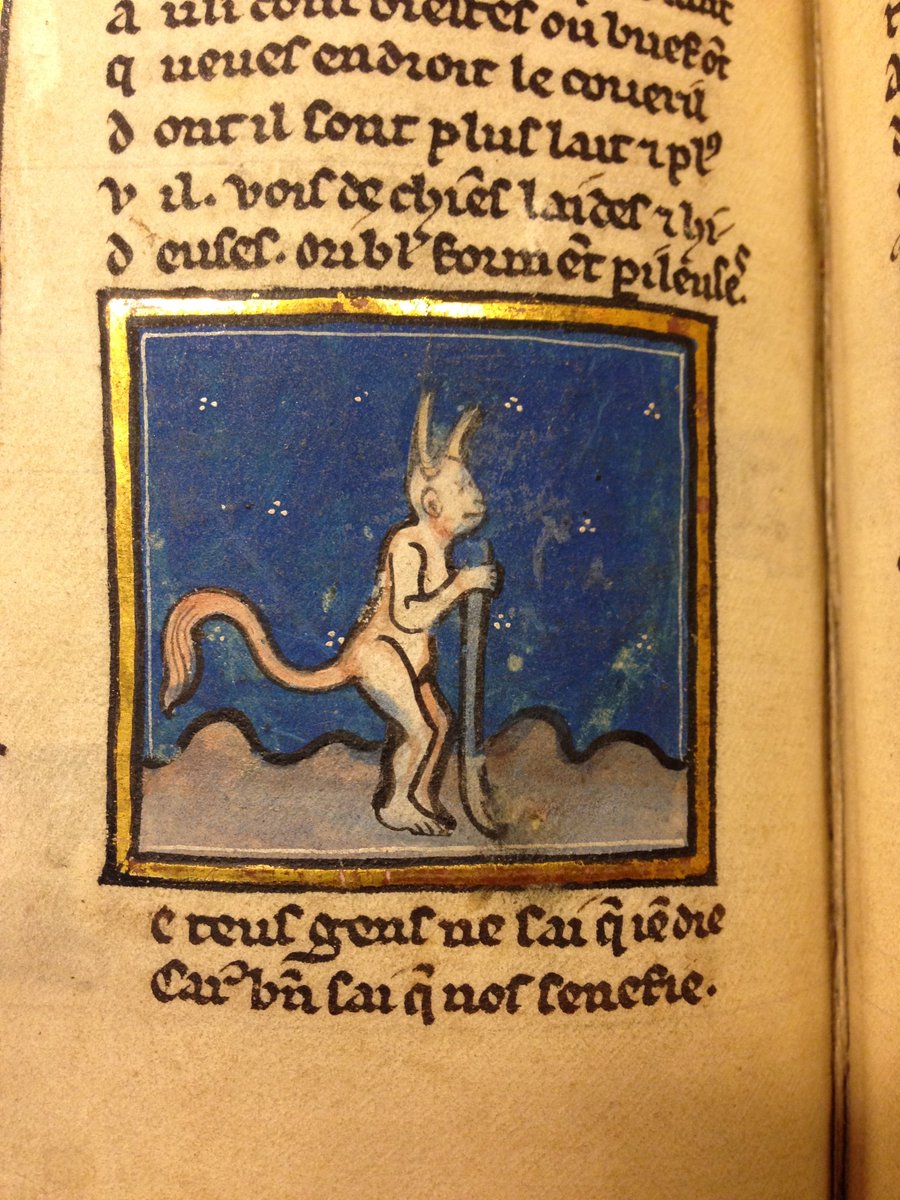 A uſi cont bieſtes ou buef ōt
q ueues endroit le couerū
d ont il ſont plus lait ⁊ plꝰ
v il. vois de chiēs laides ⁊ hi-
d euſes. oribl' forment pileuſeˢ.
e teus gens ne ſai q̄ iē die
Car bn̄ ſai q̄ nos ſenefie.